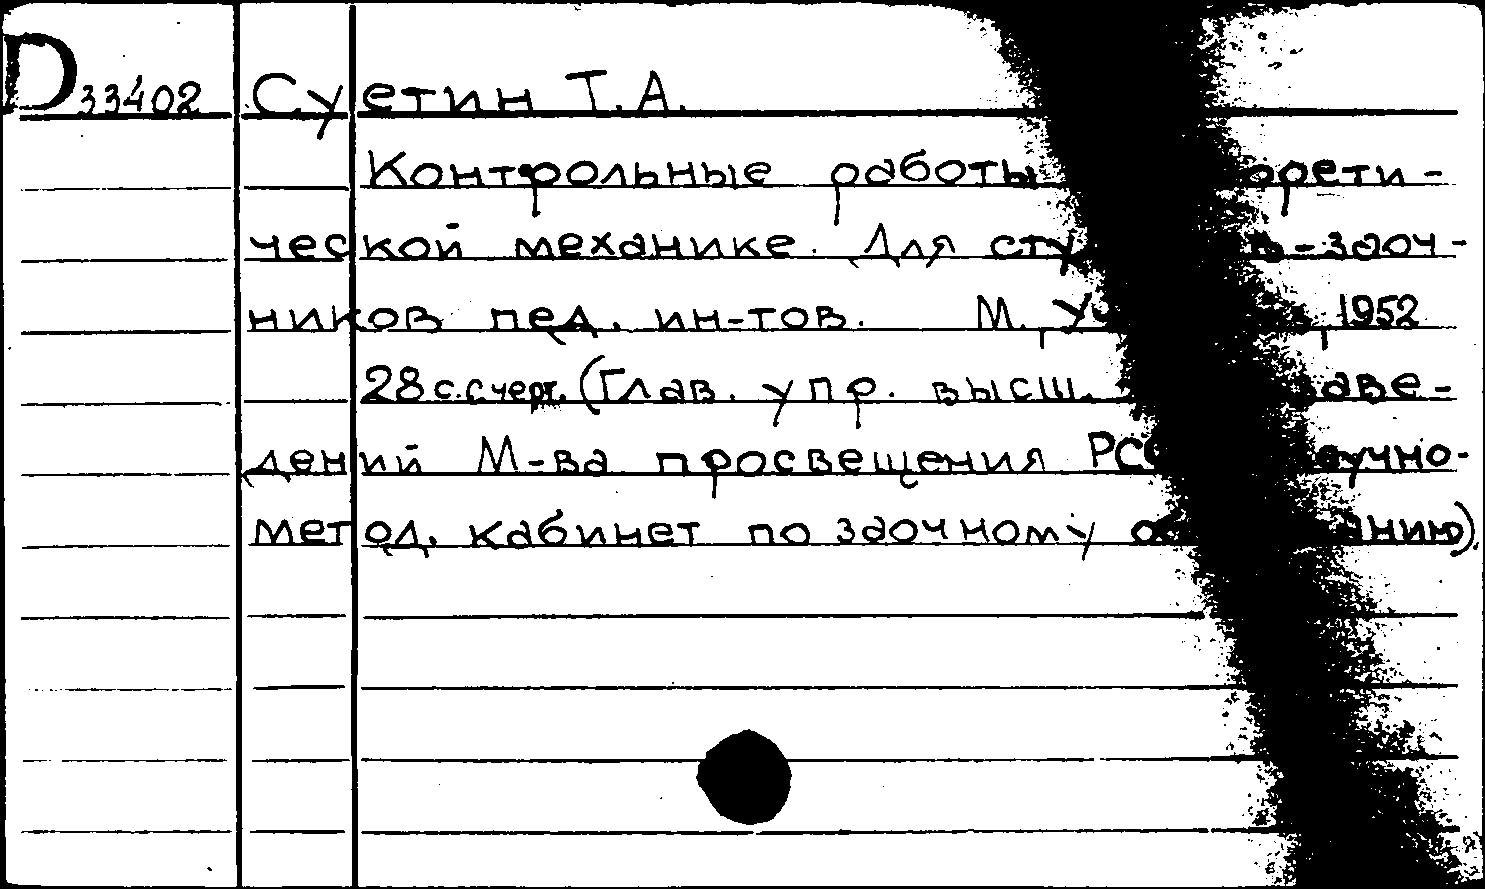 D 33402 Суетин Т.А.
Контрольные работы
ческой механике. Для -заоч-
ников пед. ин-тов. М., 1952
28 с. с черт. (Глав. упр. высш. заве-
дений М-ва просвещения
метод. кабинет по заочному